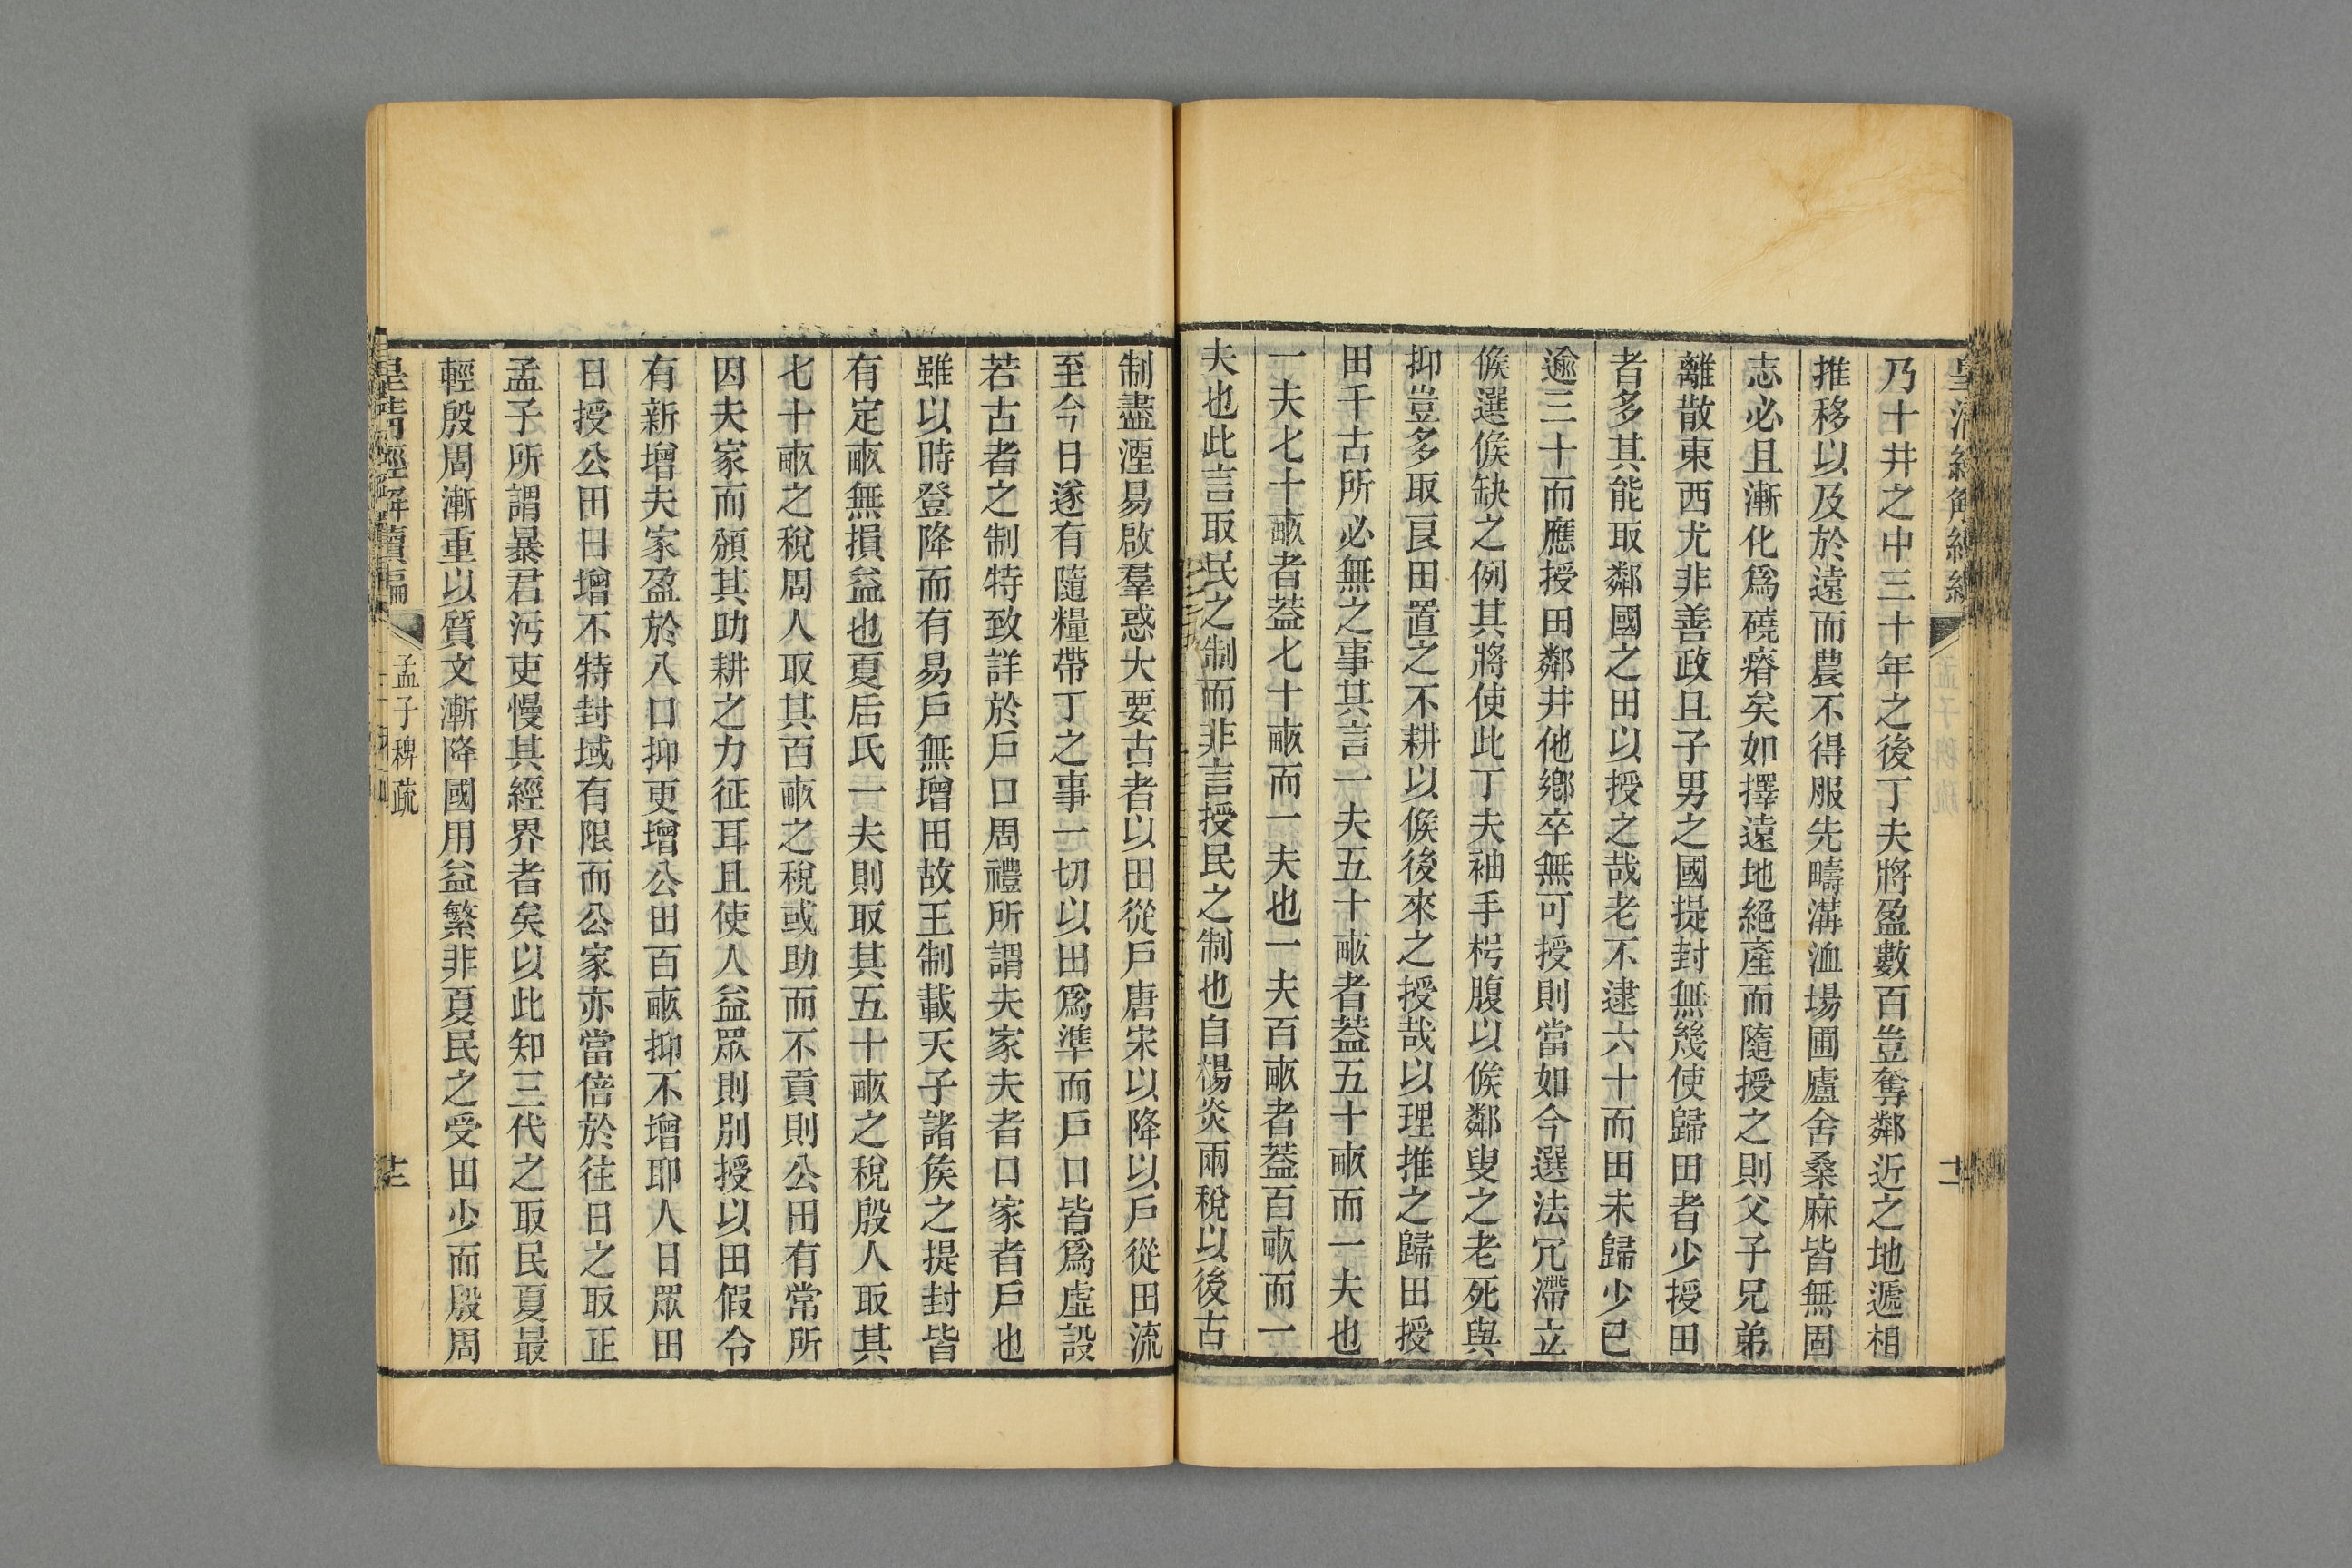 乃十井之中三十年之後丁夫將盈數百豈奪鄰近之地遞相
推移以及於遠而農不得服先疇溝洫場圃廬舍桑麻皆無固
志必且漸化爲磽瘠矣如擇遠地絕產而隨授之則父子兄弟
離散東西尤非善政且子男之國提封無幾使歸田者少授田
者多其能取鄰國之田以授之哉老不逮六十而田未歸少已
逾三十而應授田鄰井他鄉卒無可授則當如今選法冗滯立
候選候缺之例其將使此丁夫袖手枵腹以候鄰叟之老死與
抑豈多取良田置之不耕以候後來之授哉以理推之歸田授
田千古所必無之事其言一夫五十畝者蓋五十畝而一夫也
一夫七十畝者蓋七十畝而一夫也一夫百畝者蓋百畝而一
夫也此言取民之制而非言授民之制也自楊炎兩稅以後古
制盡湮易啟羣惑大要古者以田從戶唐宋以降以戶從田流
至今日遂有隨糧帶丁之事一切以田爲準而戶口皆爲虛設
若古者之制特致詳於戶口周禮所謂夫家夫者口家者戶也
雖以時登降而有易戶無增田故王制載天子諸矦之提封皆
有定畝無損益也夏后氏一夫則取其五十畝之稅殷人取其
七十畝之稅周人取其百畝之稅或助而不貢則公田有常所
因夫家而頒其助耕之力征耳且使人益眾則別授以田假令
有新增夫家盈於八口抑更增公田百畝抑不增耶人日眾田
日授公田日增不特封域有限而公家亦當倍於往日之取正
孟子所謂暴君污吏慢其經界者矣以此知三代之取民夏最
輕殷周漸重以質文漸降國用益繁非夏民之受田少而殷周
皇清經解續編
孟子稗疏